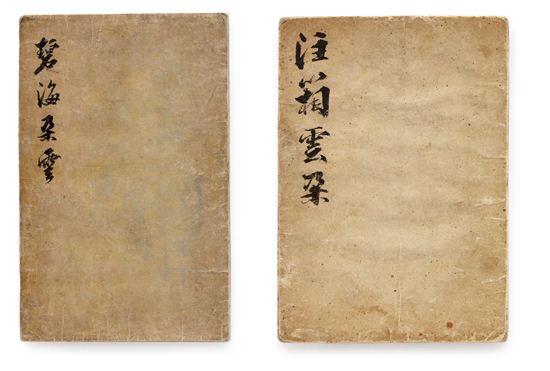 碧海朶雲
注箱雲朶